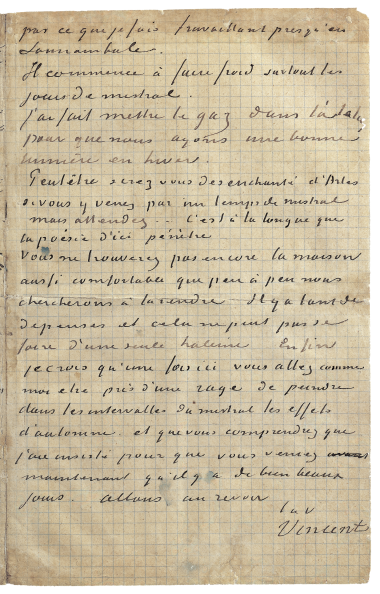 par ce que je fais travaillant presqu'en
somnambule.
Il commence à faire froid surtout les
jours de mistral.
J'ai fait mettre le gaz dans l'atelier
pour que nous ayons une bonne
lumière en hiver.
Peutêtre serez vous desenchanté d'Arles
si vous y venez par un temps de mistral
mais attendez.. C'est à la longue que
la poésie d'ici pénètre
Vous ne trouverez pas encore la maison
aussi comfortable que peu à peu nous
chercherons à la rendre Il y a tant de
depenses et cela ne peut pas se
faire d'une seule haleine Enfin
je crois qu'une fois ici vous allez comme
moi etre pris d'une rage de peindre
dans les intervalles du mistral les effets
d'automne. et que vous comprendrez que
j'aie insisté pour que vous veniez
maintenant qu'il y a de bien beaux
jours. allons au revoir
t. à v
Vincent